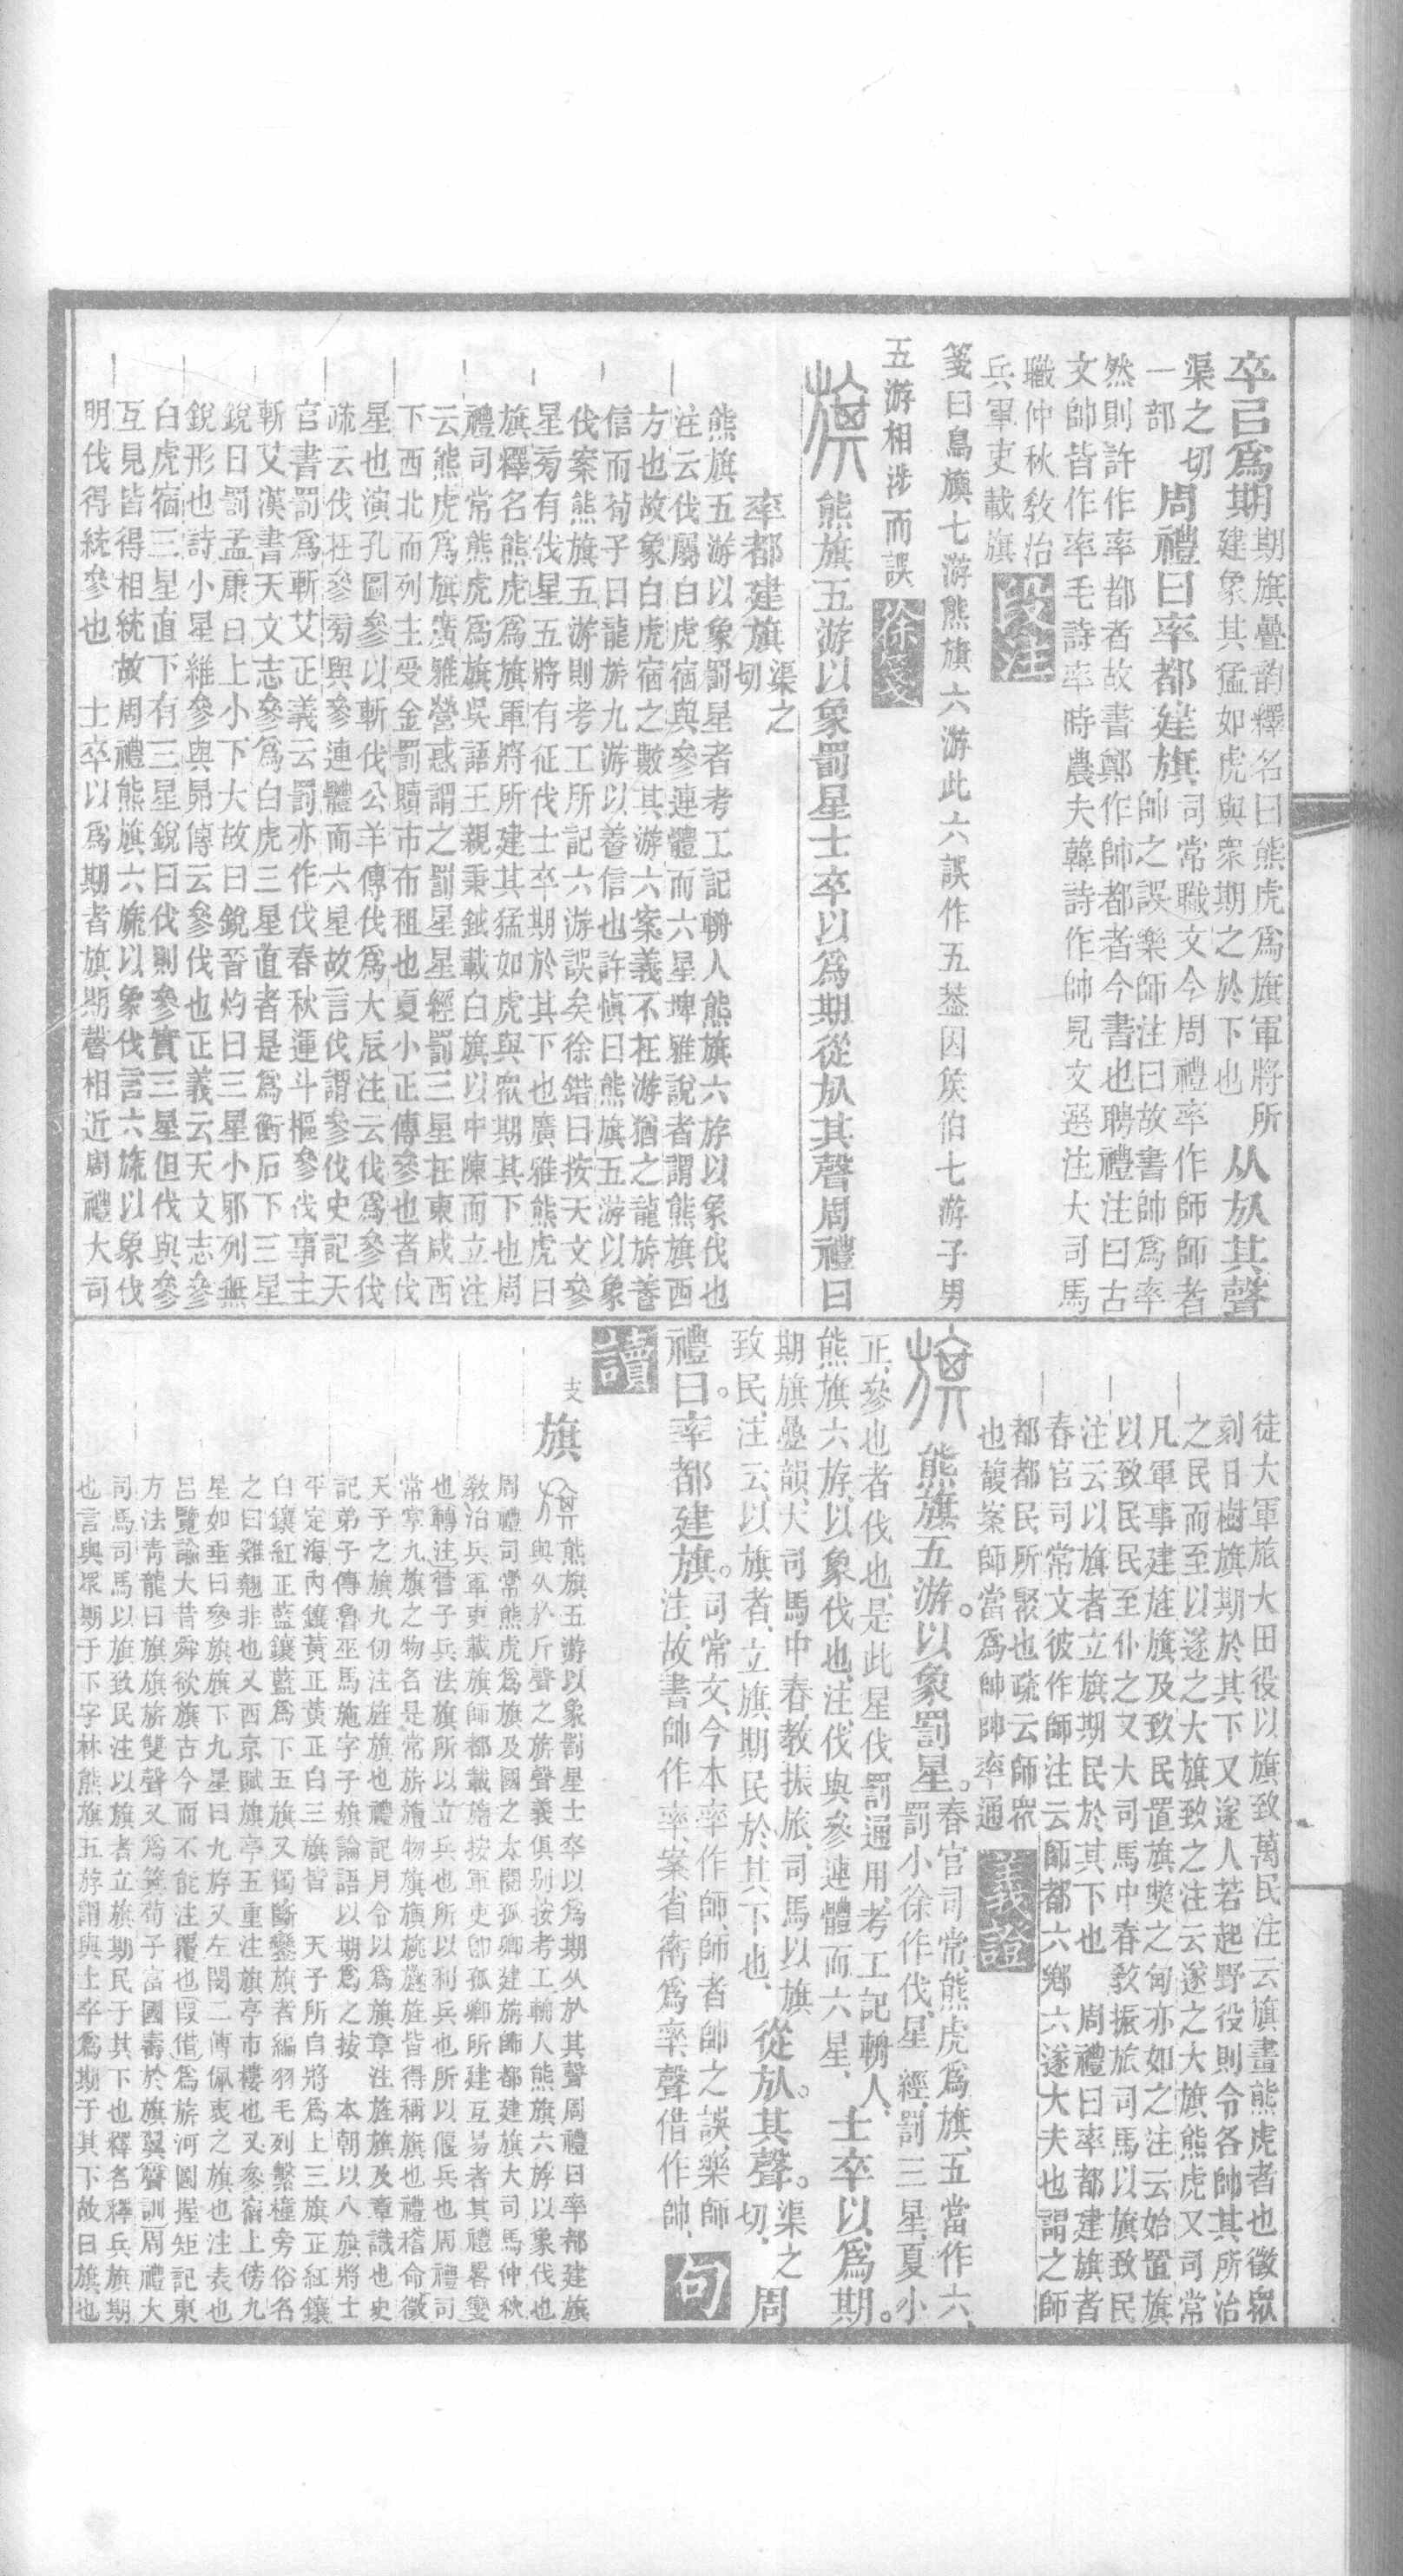 卒㠯爲期期旗疊韵釋名曰熊虎爲旗軍將所
建象其猛如虎與衆期之於下也从㫃其聲
渠之切
一部周禮曰率都建旗司常職文今周禮率作師師者
帥之誤樂師注曰故書帥爲率
然則許作率都者故書鄭作帥都者今書也聘禮注曰古
文帥皆作率毛詩率時農夫韓詩作帥見文選注大司馬
職仲秋敎治
兵軍吏載旗
段注
箋曰鳥旟七游熊旗六游此六誤作五葢因矦伯七游子男
五游相涉而誤
徐箋
熊旗五游以象罰星士卒以爲期從㫃其聲周禮曰
率都建旗渠之
切
熊旗五游以象罰星者考工記輈人熊旗六斿以象伐也
注云伐屬白虎宿與參連體而六星埤雅說者謂熊旗西
方也故象白虎宿之數其游六案義不在游猶之龍旂善
信而荀子曰龍旂九游以養信也許愼曰熊旗五游以象
伐案熊旗五游則考工所記六游誤矣徐鍇曰按天文參
星㫄有伐星五將有征伐士卒期於其下也廣雅熊虎曰
旗釋名熊虎爲旗軍將所建其猛如虎與衆期其下也周
禮司常熊虎爲旗吳語王親秉鉞載白旗以中陳而立注
云熊虎爲旗廣雅營惑謂之罰星星經罰三星在東咸西
下西北而列主受金罰贖市布租也夏小正傳參也者伐
星也演孔圖參以斬伐公羊傳伐爲大辰注云伐爲參伐
疏云伐在參㫄與參連體而六星故言伐謂參伐史記天
官書罰爲斬艾正義云罰亦作伐春秋運斗樞參伐事主
斬艾漢書天文志參爲白虎三星直者是爲衡石下三星
銳曰罰孟康曰上小下大故曰銳晉灼曰三星小邪列無
銳形也詩小星維參與昴傳云參伐也正義云天文志參
白虎宿三星直下有三星銳曰伐則參實三星但伐與參
互見皆得相統故周禮熊旗六旒以象伐言六旒以象伐
明伐得統參也　士卒以爲期者旗期聲相近周禮大司
徒大軍旅大田役以旗致萬民注云旗畫熊虎者也徵衆
刻日樹旗期於其下又遂人若起野役則令各帥其所治
之民而至以遂之大旗致之注云遂之大旗熊虎又司常
凡軍事建旌旗及致民置旗獘之甸亦如之注云始置旗
以致民民至仆之又大司馬中春敎振旅司馬以旗致民
注云以旗者立旗期民於其下也　周禮曰率都建旗者
春官司常文彼作師注云師都六鄉六遂大夫也謂之師
都都民所聚也疏云師衆
也馥案師當爲帥帥率通
義證
熊旗五游。以象罰星。春官司常熊虎爲旗、五當作六、
罰小徐作伐、星經罰三星、夏小
正、參也者伐也、是此星伐罰通用、考工記輈人、
熊旗六斿、以象伐也、注伐與參連體而六星、士卒以爲期。
期旗疊韻、大司馬中春、教振旅、司馬以旗
致民、注云、以旗者、立旗期民於其下也、從㫃。其聲。渠之
切、周
禮曰。率都建旗。司常文、今本率作師、師者帥之誤、樂師
注、故書帥作率、案省䘖爲率、聲借作帥、
句
讀
支
旗
熊旗五游以象罰星士卒以爲期从㫃其聲周禮曰率都建旗
與从㫃斤聲之旂聲義俱别按考工輈人熊旗六斿以象伐也
周禮司常熊虎爲旗及國之大閱孤卿建旃師都建旗大司馬仲秋
敎治兵軍吏載旗師都載旜按軍吏卽孤卿所建互易者其禮畧變
也轉注管子兵法旗所以立兵也所以利兵也所以偃兵也周禮司
常掌九旗之物名是常旂旜物旗旟旐旞旌皆得稱旗也禮稽命徵
天子之旗九仞注旌旗也禮記月令以爲旗章注旌旗及章識也史
記弟子傳魯巫馬施字子旗論語以期爲之按　本朝以八旗將士
平定海內鑲黃正黃正白三旗皆　天子所自將爲上三旗正紅鑲
白鑲紅正藍鑲藍爲下五旗又獨斷鑾旗者編羽毛列繫橦旁俗名
之曰雞翹非也又西京賦旗亭五重注旗亭市樓也又參宿上傍九
星如垂曰參旗旗下九星曰九斿又左閔二傳佩衷之旗也注表也
呂覽論大昔舜欲旗古今而不能注覆也叚借爲旂河圖握矩記東
方法青龍曰旗旗旂雙聲又爲箕荀子富國壽於旗翼聲訓周禮大
司馬司馬以旗致民注以旗者立旗期民于其下也釋名釋兵旗期
也言與衆期于下字林熊旗五斿謂與士卒爲期于其下故曰旗也